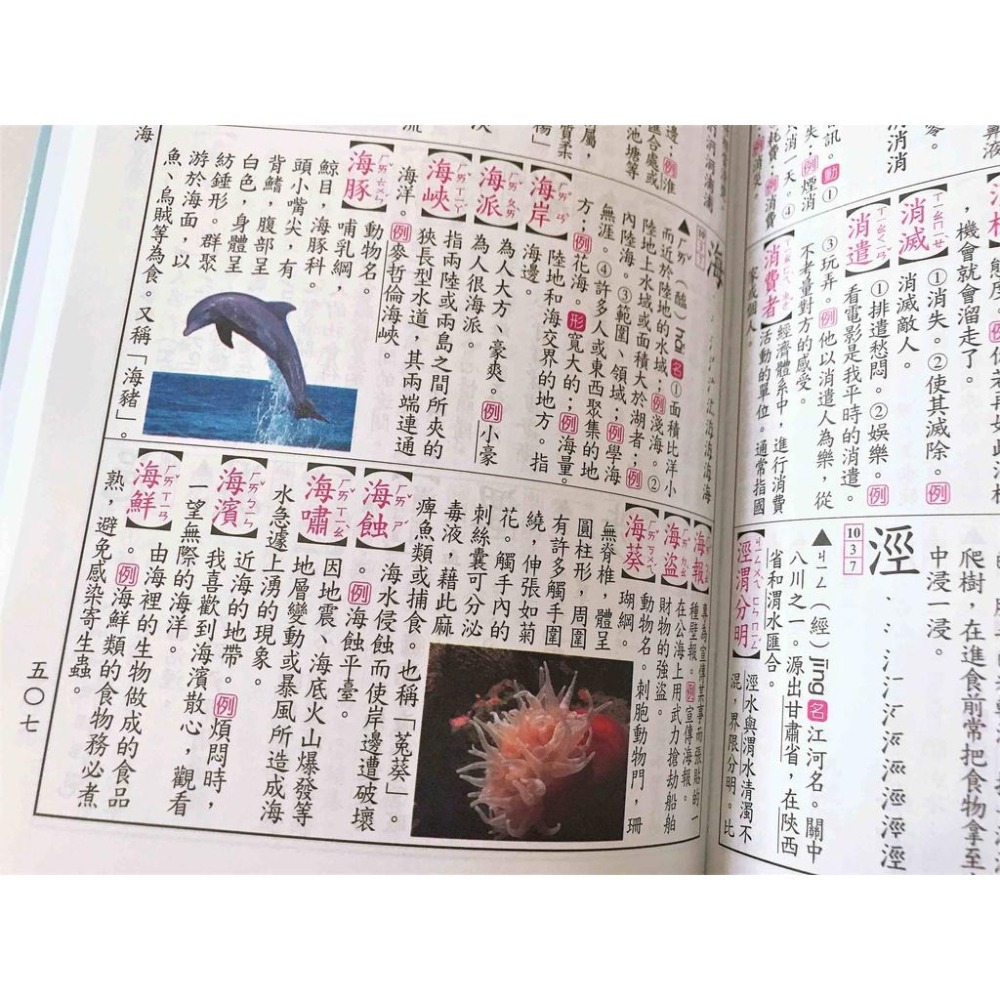 中浸一浸。
爬樹，在進食前常把食物拿至
機會就會溜走了。
消滅
①消失。②使其滅除。例
消滅敵人。
消遣
①排遣愁悶。②娛樂。例
看電影是我平時的消遣。
③玩弄。例他以消遣人為樂，從
不考量對方的感受。
消費者
經濟體系中，進行消費
活動的單位。通常指國
家或個人。
涇
10 3 7
ㄐㄧㄥ（經）jīng 名江河名。關中
八川之一。源出甘肅省，在陝西
省和渭水匯合。
涇渭分明
涇水與渭水清濁不
混，界限分明。比
海
ㄏㄞˇ（醢）hǎi 名①面積比洋小
而近於陸地的水域；例淺海。②
陸地上水域或面積大於湖者；例
內陸海。③範圍、領域；例學海
無涯。④許多人或東西聚集的地
方；例花海。形寬大的；例海量。
海岸
陸地和海交界的地方。指
海邊。
海派
為人大方、豪爽。例小豪
為人很海派。
海峽
指兩陸或兩島之間所夾的
狹長型水道，其兩端連通
海洋。例麥哲倫海峽。
海豚
動物名。哺乳綱，
鯨目，海豚科。
頭小嘴尖，有
背鰭，腹部呈
白色，身體呈
紡錘形。群聚
游於海面，以
魚、烏賊等為食。又稱「海豬」。
海報
專為宣傳某事而張貼的一
種壁報。例宣傳海報。
海盜
在公海上用武力搶劫船舶
財物的強盜。
海葵
動物名。刺胞動物門，珊
瑚綱。
無脊椎，體呈
圓柱形，周圍
有許多觸手圍
繞，伸張如菊
花。觸手內的
刺絲囊可分泌
毒液，藉此麻
痺魚類或捕食。也稱「菟葵」。
海蝕
海水侵蝕而使岸邊遭破壞
。例海蝕平臺。
海嘯
因地震、海底火山爆發等
地層變動或暴風所造成海
水急遽上湧的現象。
海濱
近海的地帶。例煩悶時，
我喜歡到海濱散心，觀看
一望無際的海洋。
海鮮
由海裡的生物做成的食品
。例海鮮類的食物務必煮
熟，避免感染寄生蟲。
海
五〇七